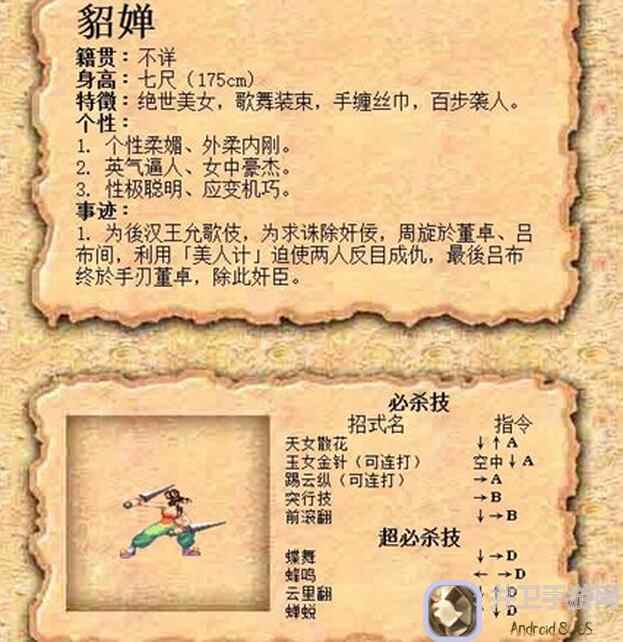 貂婵
籍贯：不详
身高：七尺（175cm）
特徵：绝世美女，歌舞装束，手缠丝巾，百步袭人。
个性：
1. 个性柔媚、外柔内刚。
2. 英气逼人、女中豪杰。
3. 性极聪明、应变机巧。
事迹：
1. 为後汉王允歌伎，为求诛除奸佞，周旋於董卓、吕
布间，利用「美人计」迫使两人反目成仇，最後吕布
终於手刃董卓，除此奸臣。
必杀技
招式名 指令
天女散花 ↓↑A
玉女金针（可连打） 空中↓A
踢云纵（可连打） →A
突行技 →B
前滚翻 ↓→B
超必杀技
蝶舞 ↓→D
蜂鸣 ← →D
云里翻 D
蝉蜕 D
卫手游网
Android & iOS